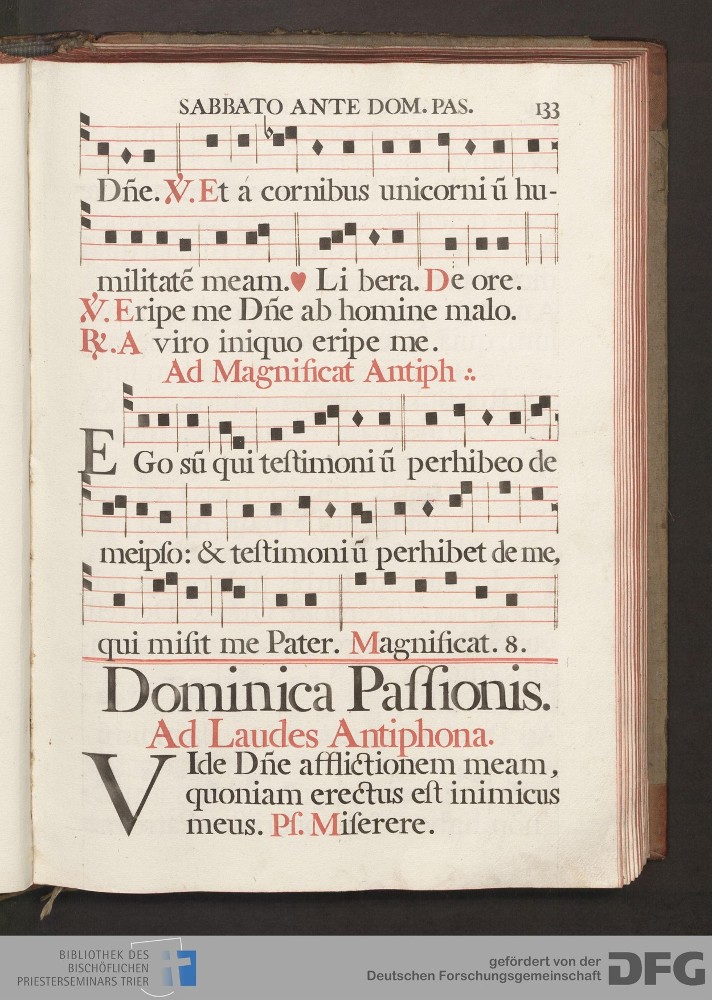 SABBATO ANTE DOM. PAS. 133
Dñe. ℣. Et á cornibus unicorni ũ hu-
militatẽ meam.♥ Li bera. De ore.
℣. Eripe me Dñe ab homine malo.
℟. A viro iniquo eripe me.
Ad Magnificat Antiph ∴
EGo sũ qui teſtimoni ũ perhibeo de
meipſo: & teſtimoni ũ perhibet de me,
qui miſit me Pater. Magnificat. 8.
Dominica Paſſionis.
Ad Laudes Antiphona.
VIde Dñe afflictionem meam,
quoniam erectus eſt inimicus
meus. Pſ. Miſerere.
BIBLIOTHEK DES
BISCHÖFLICHEN
PRIESTERSEMINARS TRIER
gefördert von der
Deutschen Forschungsgemeinschaft
DFG